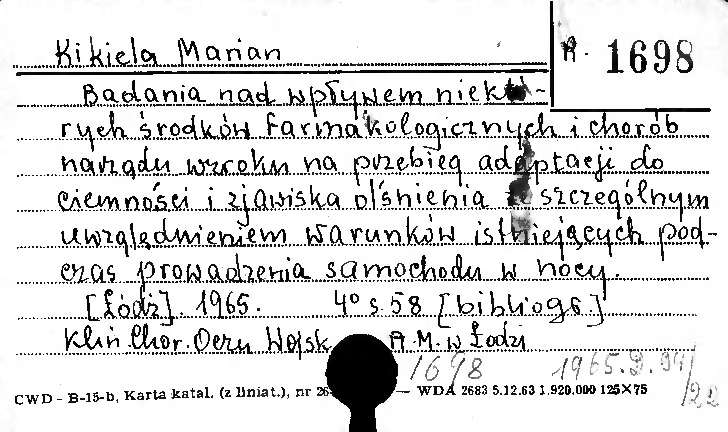 Kikiela Marian
A. 1698
Badania nad wpływem niektó-
rych środków farmakologicznych i chorób
narządu wzroku na przebieg adaptacji do
ciemności i zjawiska olśnienia ze szczególnym
uwzględnieniem warunków istniejących pod-
czas prowadzenia samochodu w nocy.
[Łódź]. 1965. 4° s. 58 [bibliogr.]
Klin Chor. Oczu Wojsk. A.M. w Łodzi
1698 1965.D.94/22
CWD - B-15-b, Karta katal. (z liniat.), nr — WDA 2683 5.12.63 1.920.000 125×75